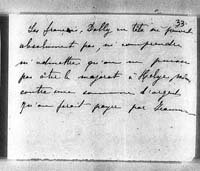 33.
Les français, Dolly en tête ne peuvent
absolument pas ni comprendre
ni admettre qu'on ne puisse
pas ôter le majorat à Helge,
contre une somme d'argent
qu'on ferait payer par